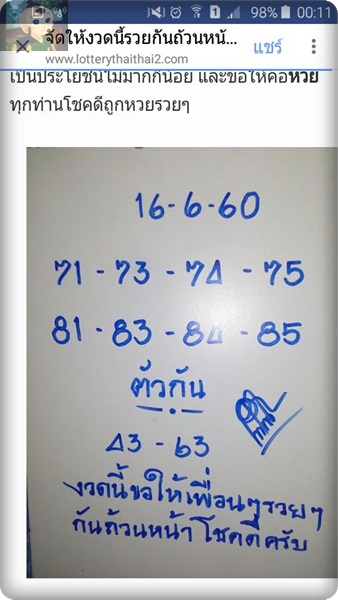 98% 00:11
จัดให้งวดนี้รวยกันถ้วนหน้...
www.lotterythaithai2.com
แชร์
เป็นประโยชน์ไม่มากก็น้อย และขอให้คอหวย
ทุกท่านโชคดีถูกหวยรวยๆ
16-6-60
71 - 73 - 74 - 75
81 - 83 - 84 - 85
ตัวกัน
43 - 63
งวดนี้ขอให้เพื่อนๆรวยๆ
กันถ้วนหน้าโชคดีครับ